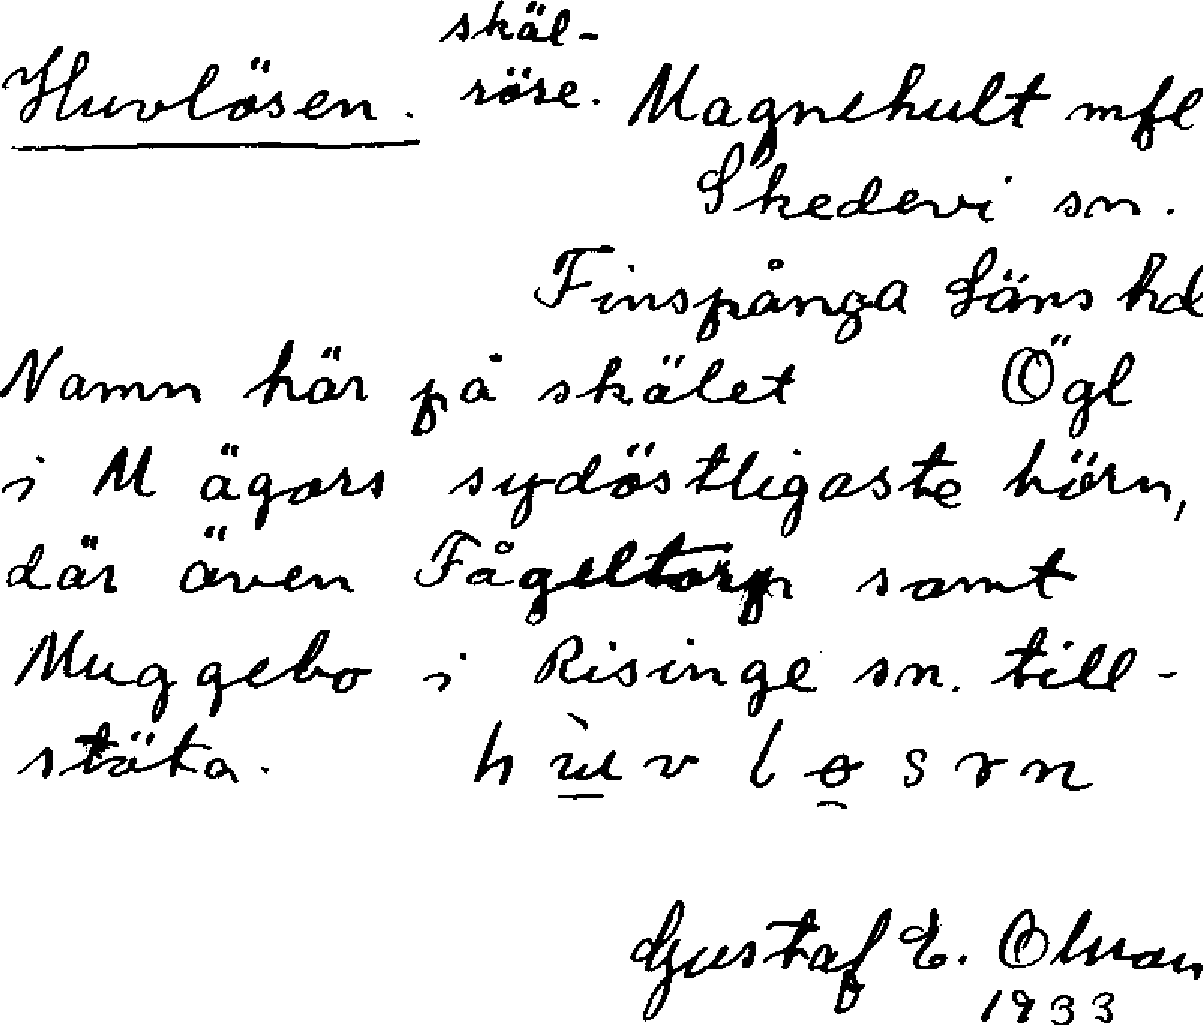 Huvlösen. skäl-
röse. Magnehult mfl
Skedevi sn.
Finspånga Läns hd
Namn här på skälet Ögl
i M ägors sydöstligaste hörn,
där även Fågeltorp samt
Muggebo i Risinge sn. till-
stöta.
Gustaf E. Olman
1933